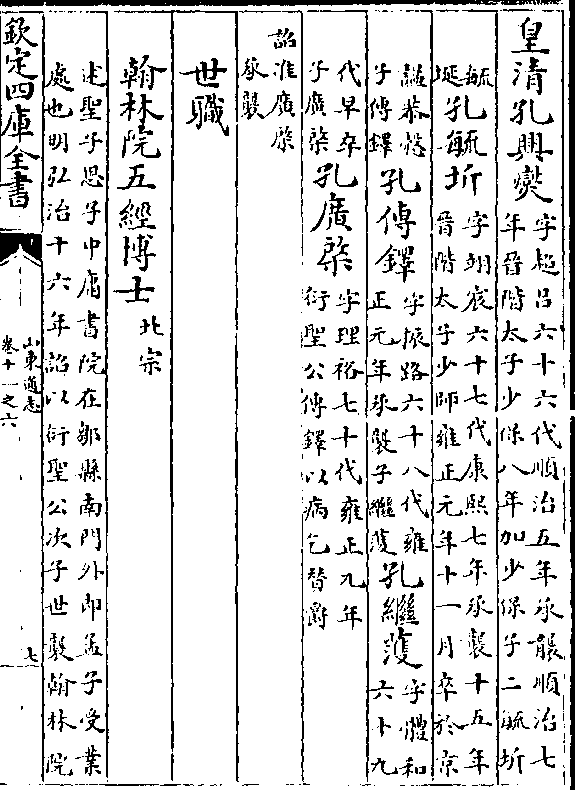 皇清孔興燮字超呂六十六代順治五年承襲順治七
年晉階太子少保八年加少保子二毓圻
毓
埏孔毓圻字翊宸六十七代康熙七年承襲十五年
晉階太子少師雍正元年十一月卒於京
諡恭慤
子傳鐸孔傳鐸字振路六十八代雍
正元年承襲子繼濩孔繼濩字體和
六十九
代早卒
子廣棨孔廣棨字理裕七十代雍正九年
衍聖公傳鐸以病乞替爵
詔准廣棨
承襲
世職
翰林院五經博士北宗
述聖子思子中庸書院在鄒縣南門外即孟子受業
處也明弘治十六年詔以衍聖公次子世襲翰林院
欽定四庫全書
山東通志
卷十一之六
七